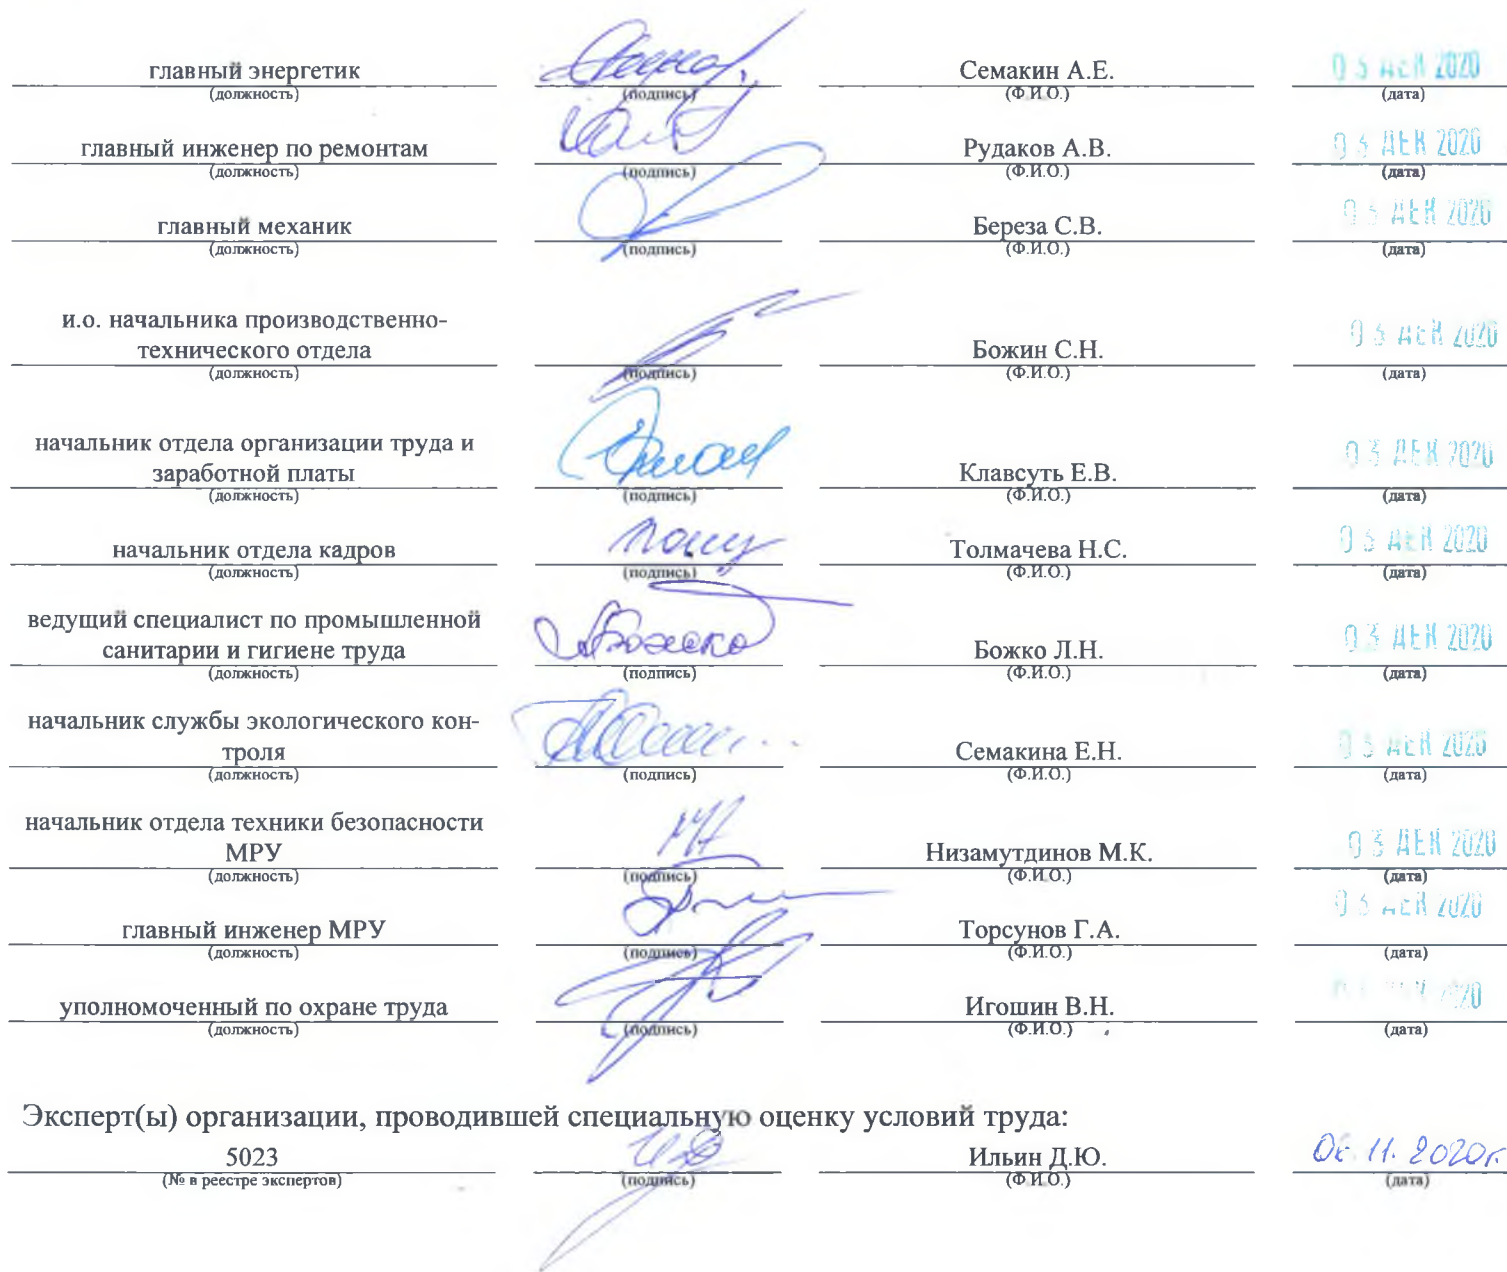 главный энергетик Семакин А.Е. 03 ДЕК 2020
(должность) (подпись) (Ф.И.О.) (дата)
главный инженер по ремонтам Рудаков А.В. 03 ДЕК 2020
(должность) (подпись) (Ф.И.О.) (дата)
главный механик Береза С.В. 03 ДЕК 2020
(должность) (подпись) (Ф.И.О.) (дата)
и.о. начальника производственно-
технического отдела Божин С.Н. 03 ДЕК 2020
(должность) (подпись) (Ф.И.О.) (дата)
начальник отдела организации труда и
заработной платы Клавсуть Е.В. 03 ДЕК 2020
(должность) (подпись) (Ф.И.О.) (дата)
начальник отдела кадров Толмачева Н.С. 03 ДЕК 2020
(должность) (подпись) (Ф.И.О.) (дата)
ведущий специалист по промышленной
санитарии и гигиене труда Божко Л.Н. 03 ДЕК 2020
(должность) (подпись) (Ф.И.О.) (дата)
начальник службы экологического кон-
троля Семакина Е.Н. 03 ДЕК 2020
(должность) (подпись) (Ф.И.О.) (дата)
начальник отдела техники безопасности
МРУ Низамутдинов М.К. 03 ДЕК 2020
(должность) (подпись) (Ф.И.О.) (дата)
главный инженер МРУ Торсунов Г.А. 03 ДЕК 2020
(должность) (подпись) (Ф.И.О.) (дата)
уполномоченный по охране труда Игошин В.Н.
(должность) (подпись) (Ф.И.О.) (дата)
Эксперт(ы) организации, проводившей специальную оценку условий труда:
5023 Ильин Д.Ю. 06.11.2020г
(№ в реестре экспертов) (подпись) (Ф.И.О.) (дата)